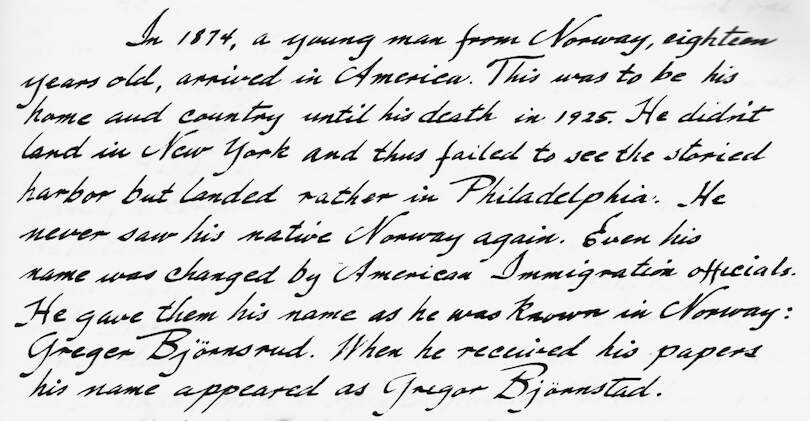 In 1874, a young man from Norway, eighteen
years old, arrived in America. This was to be his
home and country until his death in 1925. He didn't
land in New York and thus failed to see the storied
harbor but landed rather in Philadelphia. He
never saw his native Norway again. Even his
name was changed by American Immigration officials.
He gave them his name as he was known in Norway:
Greger Björnsrud. When he received his papers
his name appeared as Gregor Björnstad.